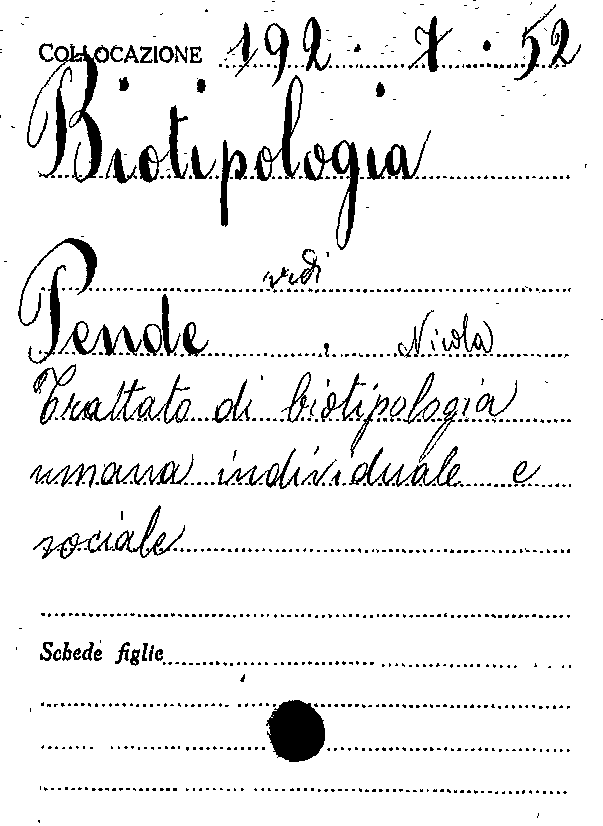 COLLOCAZIONE 192.7.52
Biotipologia
vedi
Pende, Nicola
Trattato di biotipologia
umana individuale e
sociale
Schede figlie